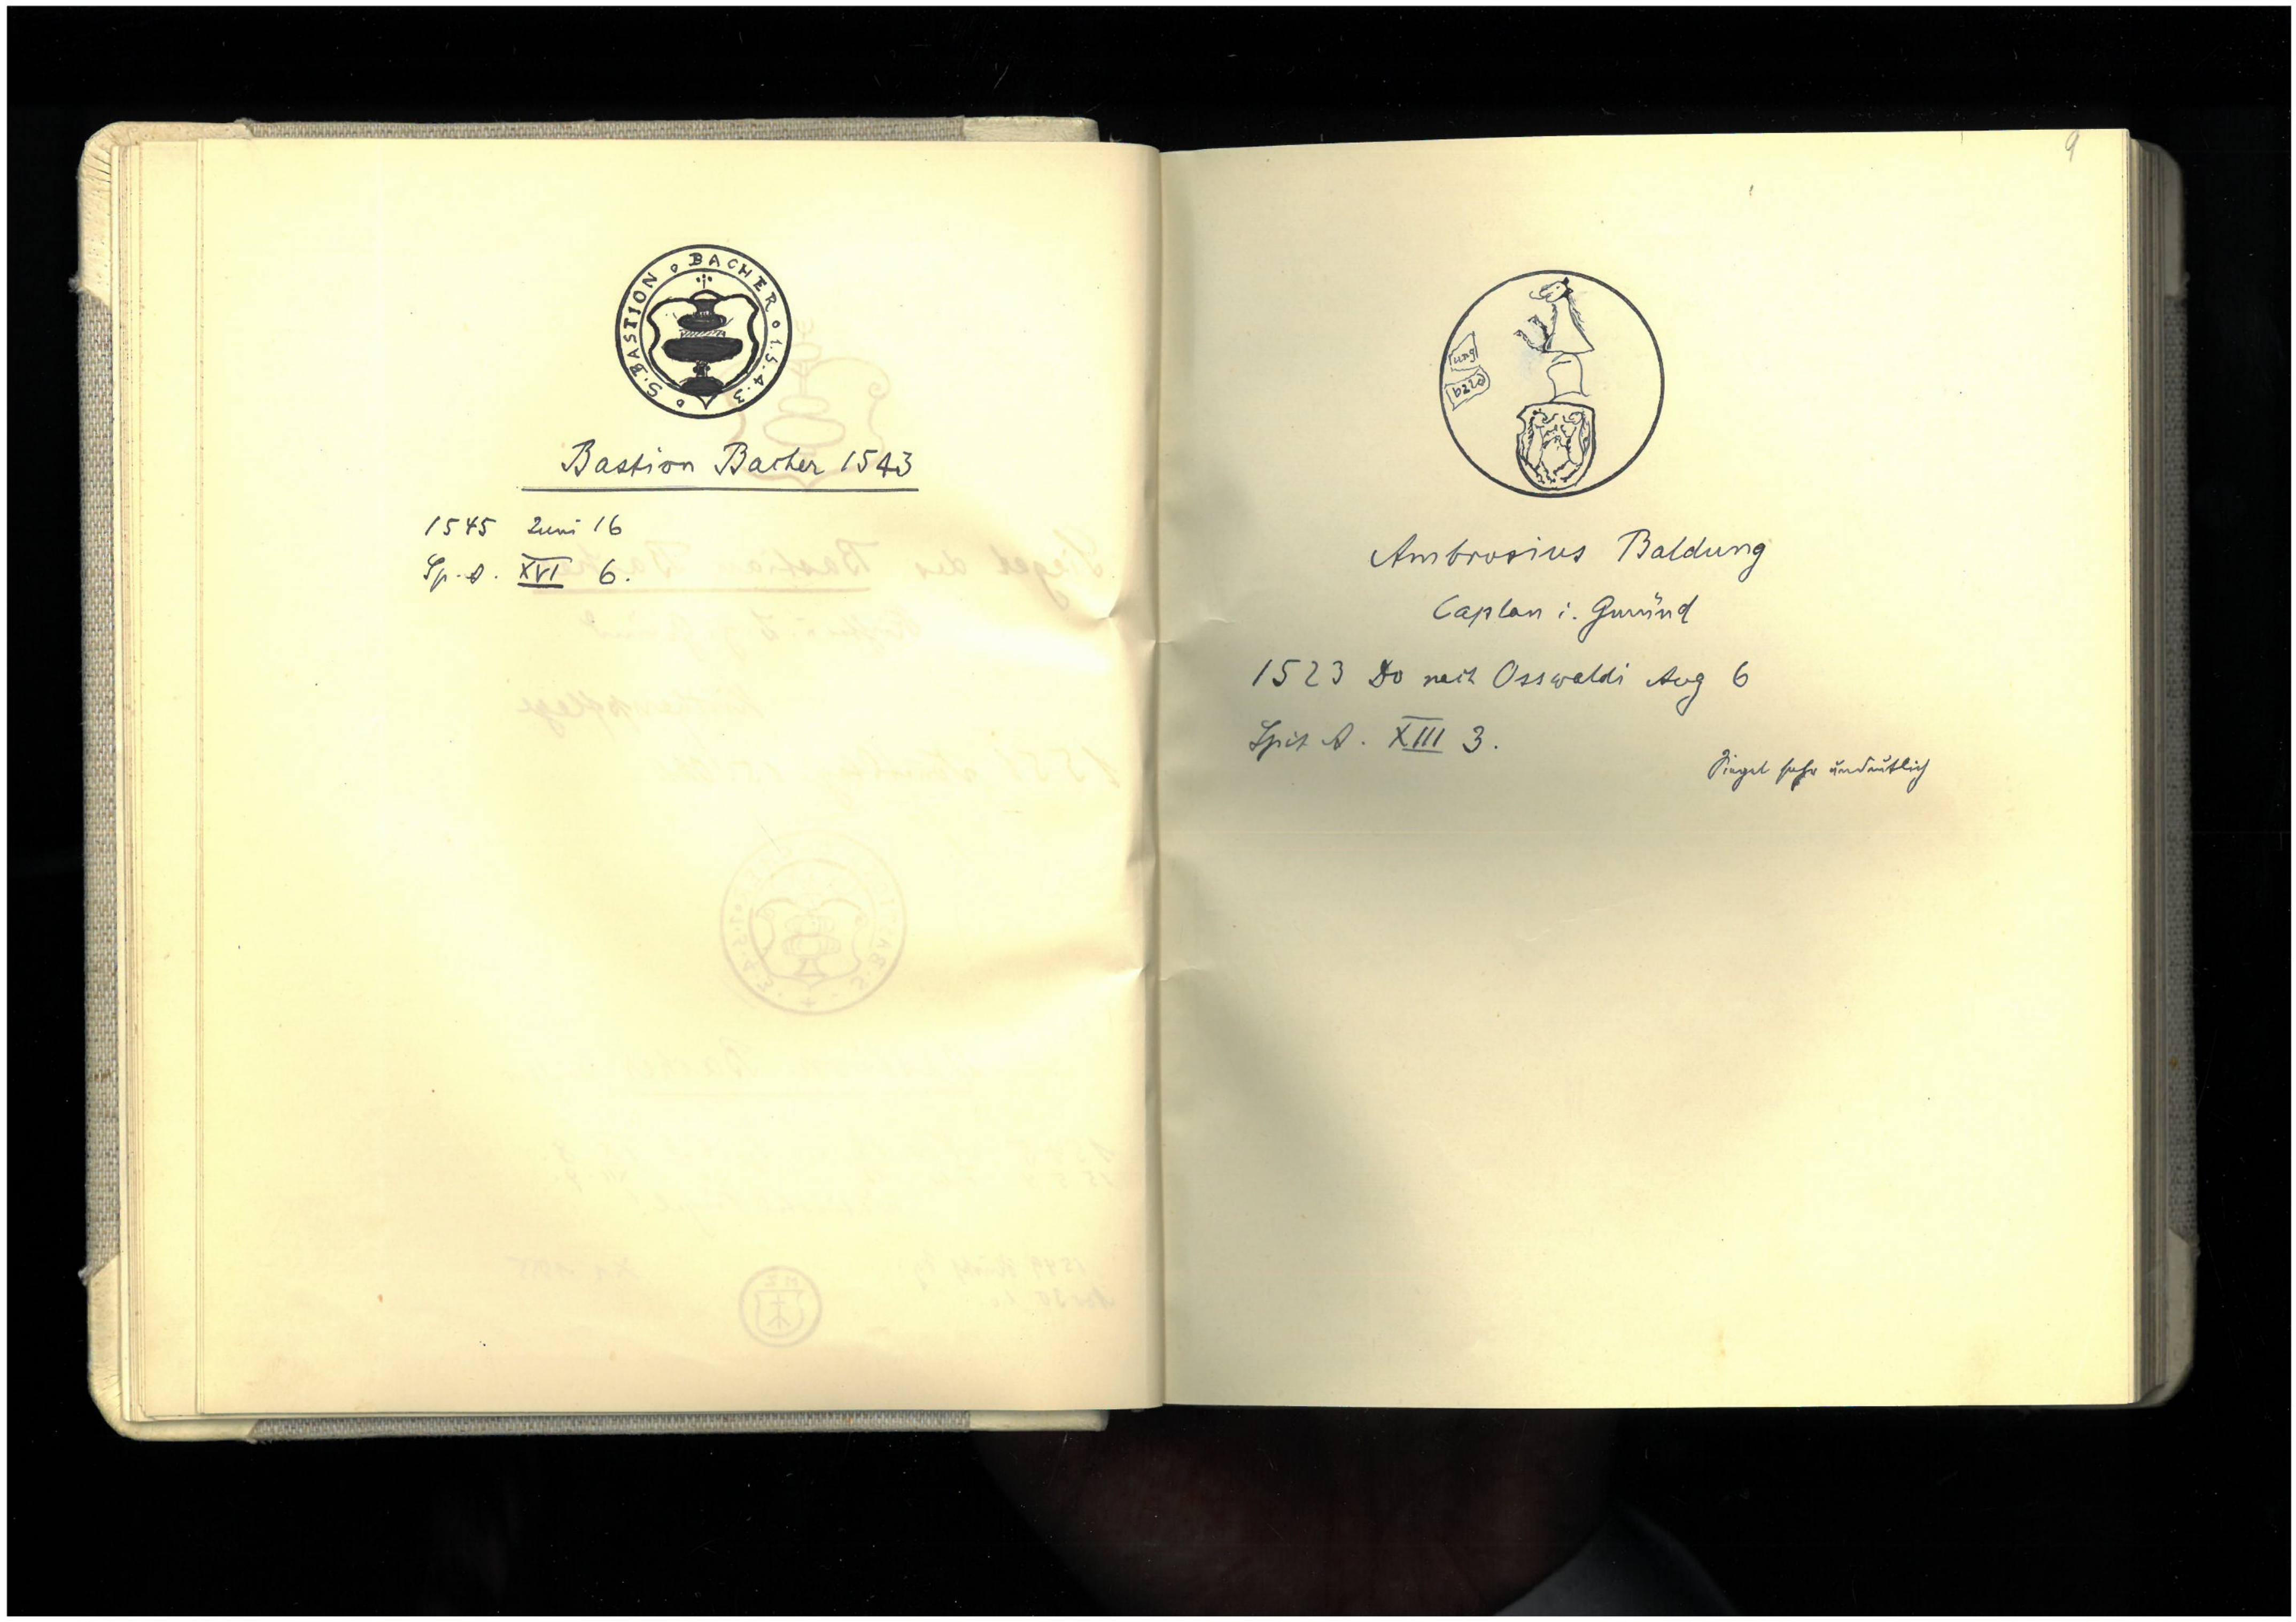 S. BASTION BACHER 1.5.4.3
Bastion Bacher 1543
1545 Juni 16
Sp. A. XVI 6.
9
ung
bald
Ambrosius Baldung
Caplan i. Gmünd
1523 Do nach Osswaldi Aug 6
Spit A. XIII 3.
Siegel sehr undeutlich